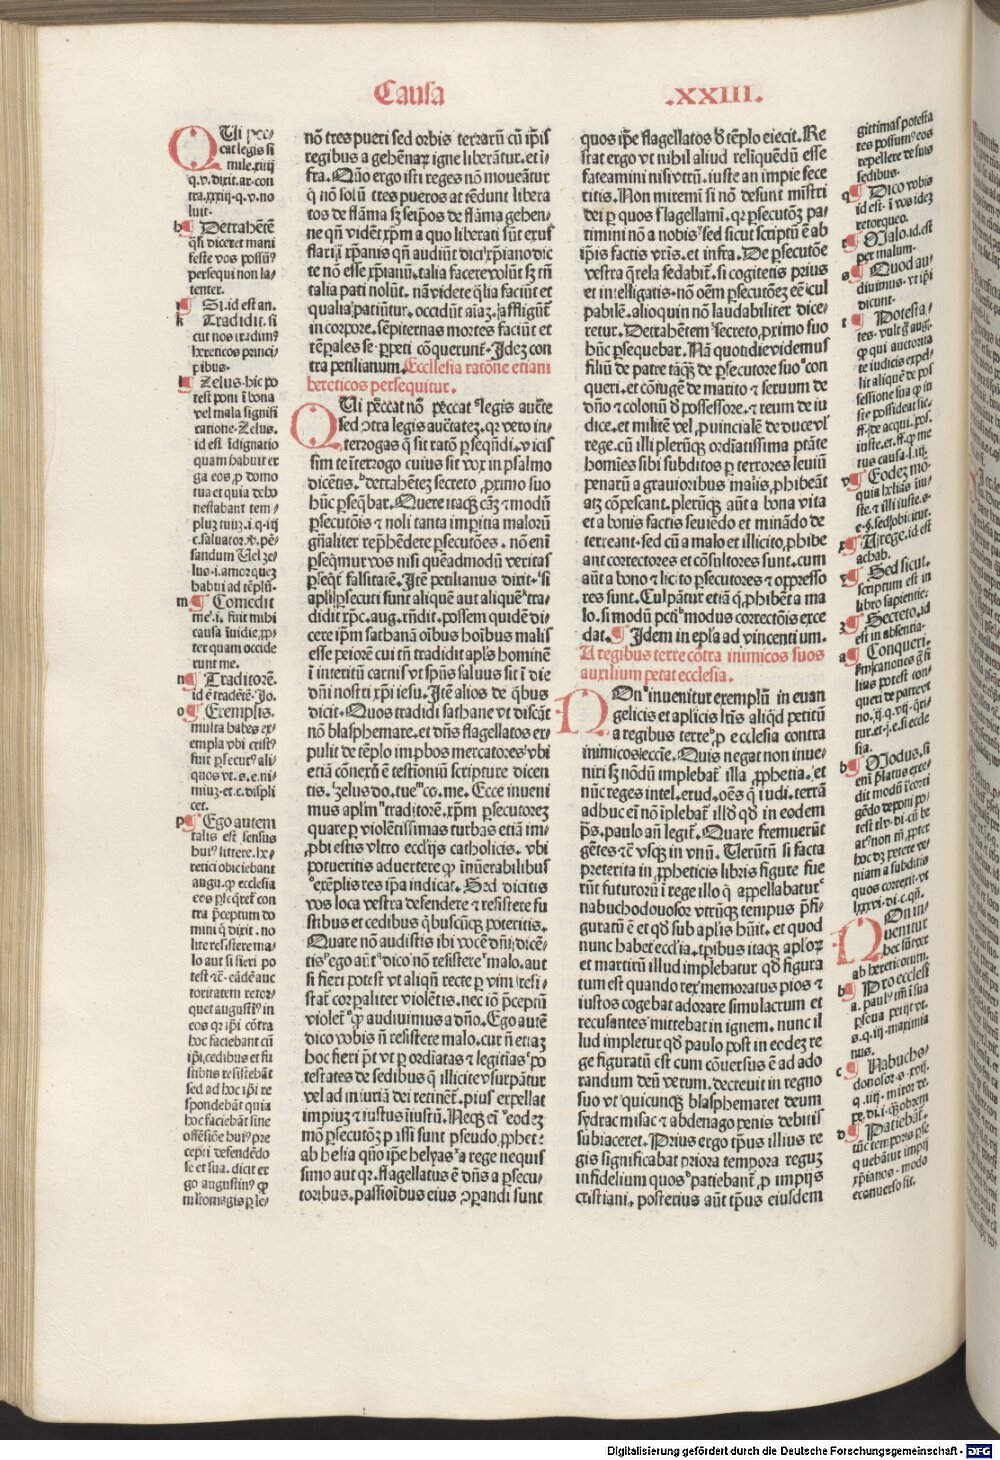 Causa .XXIII.
Qui pec-
cat legis si
mile.xxiij
q.v.dixit.ar.con
tra.xxiij.q.v.no
luit.
h Detrahētē
q̄si diceret mani
feste vos possuꝰ
persequi non la-
tenter.
i Si.id est an.
k Tradidit.si
cut nos tradimꝰ
hereticos princi-
pibus.
l Zelus.hic po
test poni ī bona
vel mala signifi
catione.Zelus.
id est īdignatio
quam habuit er
ga eos ꝓ domo
tua et quia deho
nestabant tem-
sandum Uel ze-
lus.i.amor quez
habui ad tēplū.
m Comedit
me.i.fuit mihi
causa īuidie.ꝓp-
ter quam occide
runt me.
n Traditorē.
id ē tradētē.Jo.
o Exemplis.
multa habes ex-
empla vbi cristꝰ
fuit ꝑsecutꝰ ali-
quos vt.s.e.ni-
miuz.et.c.displi
cet.
p Ego autem
talis est sensus
huiꝰ littere.he-
retici obiciebant
augu.ꝙ ecclesia
eos ꝑseq̄ret con
tra p̄ceptum do
mini q̄ dixit.no
lite resistere ma-
lo aut si fieri po
test ⁊c̄.eādē auc
toritatem retor-
quet augustīꝰ in
eos qr ip̄i cōtra
hoc faciebant cū
ip̄i.cedibus et fu
stibus resistebāt
sed ad hoc ip̄i re
spondebāt quia
hoc faciebāt sine
offēsiōe huiꝰ pre
cepti defendēdo
se et sua.dicit er
go augustinꝰ ꝙ
nō tres pueri sed orbis terrarū cū ip̄is
regibus a gehēnaꝝ igne liberātur.et ī-
fra.Quō ergo isti reges nō moueātur
q̄ nō solū tres pueros attēdunt libera
tos de flāma sꝫ seip̄os de flāma gehen-
ne qn̄ vidēt xp̄m a quo liberati sūt exuf
flari a xp̄anis qn̄ audiūt dici xp̄iano dic
te nō esse xp̄ianū.talia facere volūt sꝫ tn̄
talia pati nolūt.nā videte q̄lia faciūt et
qualia patiūtur.occidūt aīaz.affligūt
in corpore.sēpiternas mortes faciūt et
tēꝑales se ꝑpeti cōquerunt.Idez con
tra petilianum.Ecclesia ratone etiam
hereticos persequitur.
Qui pēccat nō pēccat legis auc̄te
sed ꝯtra legis auc̄tatez.qr vero in-
terrogas q̄ sit ratō ꝑseq̄ndi.vicis
sim te īterrogo cuius sit vox in psalmo
dicētis.detrahētez secreto ꝓximo suo
hūc ꝑseq̄bar.Quere itaqꝫ cāꝫ ⁊ modū
ꝑsecutōis ⁊ noli tanta imꝑitia malorū
gn̄aliter rep̄hēdere ꝑsecutōes.nō enī
ꝑseq̄mur vos nisi quēadmodū veritas
ꝑseqt̄ falsitatē.Itē petilianus dixit.si
apl̄i ꝑsecuti sunt aliquē aut aliquē tra-
didit xp̄c.aug.rn̄dit.possem quidē di-
cere ip̄m sathanā oībus hoībus malis
esse peiorē cui tn̄ tradidit apl̄s hominē
ī interitū carnis vt sp̄ūs saluus sit ī die
dn̄i nostri xp̄i iesu.Itē alios de q̄bus
dicit.Quos tradidi sathane vt discāt
nō blasphemare.et dn̄s flagellatos ex-
pulit de tēplo imꝓbos mercatores vbi
etiā cōnexū ē testioniū scripture dicen
tis.zelus do.tue co.me.Ecce inueni
mus apl̄m traditorē.xp̄m ꝑsecutorez
quare ꝑ violētissimas turbas etiā im-
ꝓbi estis vltro eccl̄ijs catholicis.vbi
potueritis aduertere ꝙ īnūerabilibus
exēplis res ip̄a indicat.Sed dicitis
vos loca vestra defendere ⁊ resistere fu
stibus et cedibus q̄buscūqꝫ poteritis.
Quare nō audistis ibi vocē dn̄i dicē-
tis ego aūt dico nō resistere malo.aut
si fieri potest vt aliqn̄ recte ꝑ vim resi-
stat̄ corꝑaliter violētis.nec iō p̄ceptū
violet ꝙ audiuimus a dn̄o.Ego autē
dico vobis n̄ resistere malo.cur n̄ etiaz
hoc fieri pt̄ vt ꝑ ordiatas ⁊ legitīas po
testates de sedibus q̄ illicite vsurpātur
vel ad iniuriā dei retinēt.pius expellat
impiuz ⁊ iustus iiustū.Neqꝫ ei eodez
mō ꝑsecutōz passi sunt pseudo ꝓphet:
ab helia qn̄o ip̄e helyas a rege nequis
simo aut qr.flagellatus ē dn̄s a ꝑsecu-
toribus.passioībus eius ꝯꝑandi sunt
quos ip̄e flagellatos ð tēplo eiecit.Re
stat ergo vt nihil aliud reliq̄uēdū esse
fateamini nisi vtrū.iuste an impie fece
ritis.Non miremī si nō desunt mīstri
dei ꝑ quos flagellamī.qr ꝑsecutōz pa-
timini non a nobis sed sicut scriptū ē ab
ip̄is factis vr̄is.et infra.De ꝑsecutōe
vestra q̄rela sedabit̄.si cogiteris prius
et intelligatis.nō oēm ꝑsecutōez eē cul
pabilē.alioquin nō laudabiliter dice-
retur.Detrahētem secreto ꝓximo suo
hūc ꝑsequebar.Nā quotidie videmus
filiū de patre tāqꝫ de ꝑsecutore suo con
queri.et cōiugē de marito ⁊ seruum de
dn̄o ⁊ colonū ð possessore.⁊ reum de iu
dice.et militē vel ꝓuincialē de duce vl̄
rege.cū illi plerūqꝫ ordiatissima ptāte
homīes sibi subditos ꝑ terrores leuiū
penarū a grauioribus malis ꝓhibeāt
atqꝫ cōpescant.plerūqꝫ aūt a bona vita
et a bonis factis seuiēdo et minādo de
terreant.sed cū a malo et illicito ꝓhibe
ant correctores et cōsultores sunt.cum
aūt a bono ⁊ licito ꝑsecutores ⁊ opresso
res sunt.Culpātur etiā q̄ ꝓhibēt a ma
lo.si modū pctī modus correctōis exce
dat.Idem in epl̄a ad vincentium.
A regibus terre cōtra inimicos suos
auxilium petat ecclesia.
Non inuenitur exemplū in euan
gelicis et aplicis lr̄is aliqd̄ petitū
a regibus terre ꝓ ecclesia contra
inimicos ecc̄ie.Quis negat non inue-
niri sꝫ nōdū implebat̄ illa ꝓphetia.et
nūc reges intel.erud.oēs q̄ iudi.terrā
adhuc eī nō īplebat̄ illð qð in eodem
p̄s.paulo añ legit̄.Quare fremuerūt
gētes ⁊c̄ vsqꝫ in vnū.Uerūtn̄ si facta
preterita in ꝓpheticis libris figure fue
rūt futurorū ī rege illo q̄ appellabatur
nabuchodonosor vtrūqꝫ tempus p̄fi-
guratū ē et qð sub apl̄is hūit.et quod
nunc habet eccl̄ia.tꝑibus itaqꝫ apl̄oꝝ
et martirū illud implebatur qð figura
tum est quando rex memoratus pios ⁊
iustos cogebat adorare simulacrum et
recusantes mittebat in ignem.nunc il
lud impletur qð paulo post in eodez re
ge figuratū est cum cōuersus ē ad ado
randum deū verum.decreuit in regno
suo vt quicunqꝫ blasphemaret deum
sydrac misac ⁊ abdenago penis debitis
subiaceret.Prius ergo tp̄us illius re
gis significabat priora tempora reguz
infidelium quos patiebant̄ ꝓ impijs
cristiani.posterius aūt tp̄us eiusdem
gittimas potesta
tes possumꝰ eos
repellere de suis
sedibus.
q Dico vobis
id est.ī vos idez
retorqueo.
r Malo.id.est
per malum.
s Quod au-
diuimus.vt ip̄i
dicunt.
t Potesta-
tes.vult g̊ aug.
ꝙ qui auctorita
te iudicis expel-
lit aliquē de pos
sessione sua ꝙ in
iuste.et.ff.ꝙ me
tus causa.l.iij.
v Eodez mo-
quia helias iu-
ste.⁊ illi iuste.s.
x A rege.id est
achab.
y Sed sicut.
scriptum est in
libro sapientie.
z Secreto.id
est in absentia.
a Conqueri.
ẜm canones g̊ fi
lius potest con-
queri de patre vt
tur.et.j.e.si eccle
sia.
b Modus.si
enī p̄latus exce-
dit modū ī corri
gēdo deponi po-
test
hoc dꝫ petere ve-
niam a subditis
quos correxit.vt
lxxxvi.di.c.qn̄.
Non in-
uenitur
hec sūt ver
ab hereticorum.
b Pro ecclesi
a.paulꝰ
s.q.iij.maxima
nus.
c Nabucho-
donosor.s.xvij.
d Patiebāt̄.
tūc temporis ꝑse
quebātur impij
xp̄ianos.modo
econuerso fit.
Digitalisierung gefördert durch die Deutsche Forschungsgemeinschaft - DFG